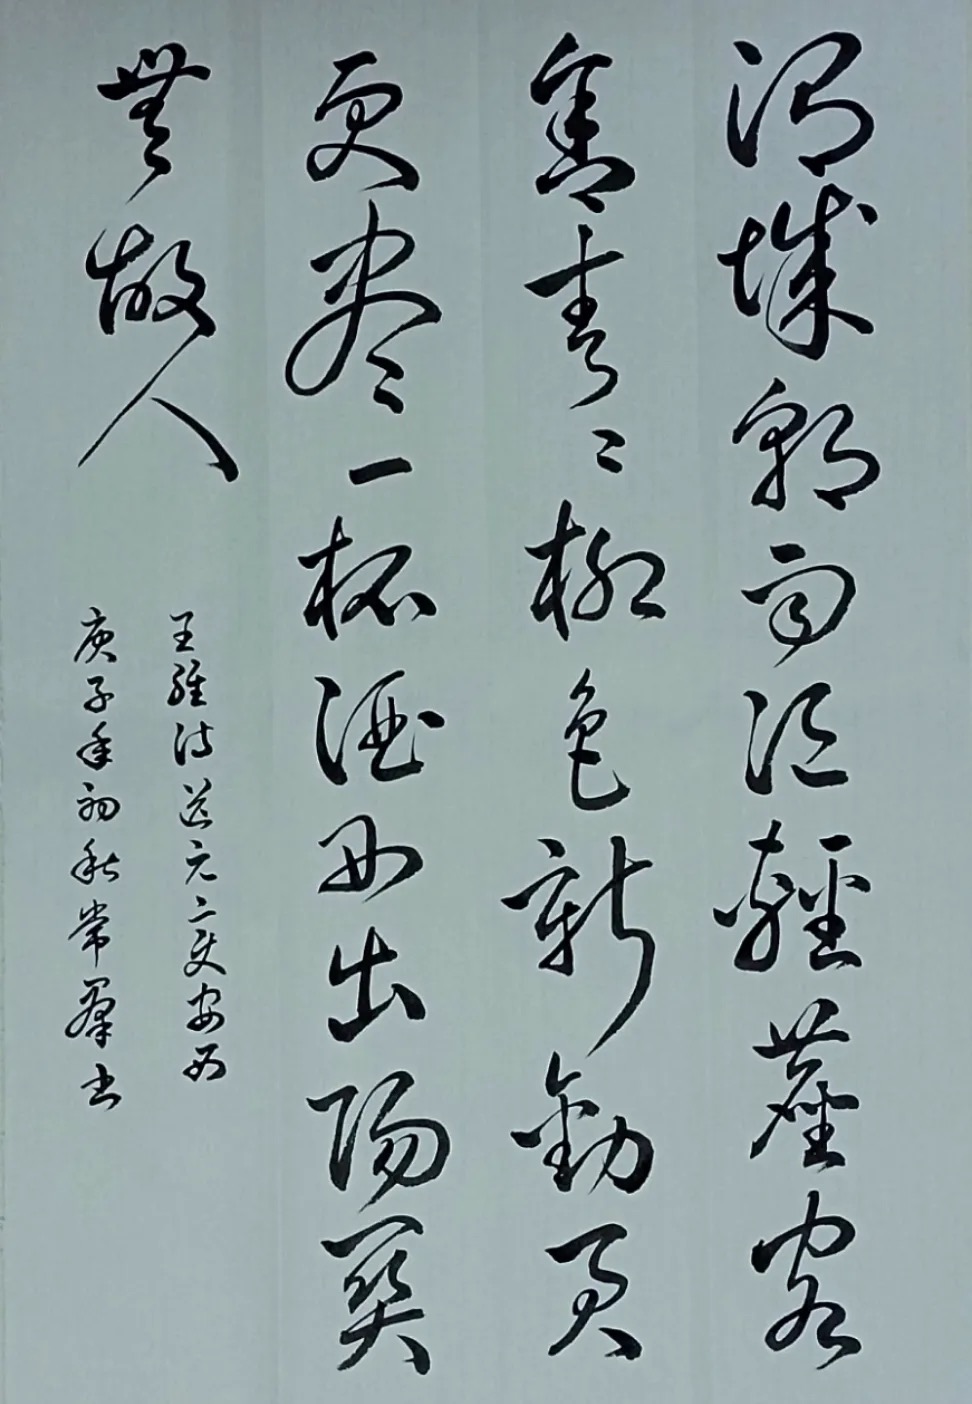 渭城朝雨浥輕塵客
舍青〻柳色新勸君
更尽一杯酒西出陽關
無故人
王維诗送元二使安西
庚子年初秋常羣书